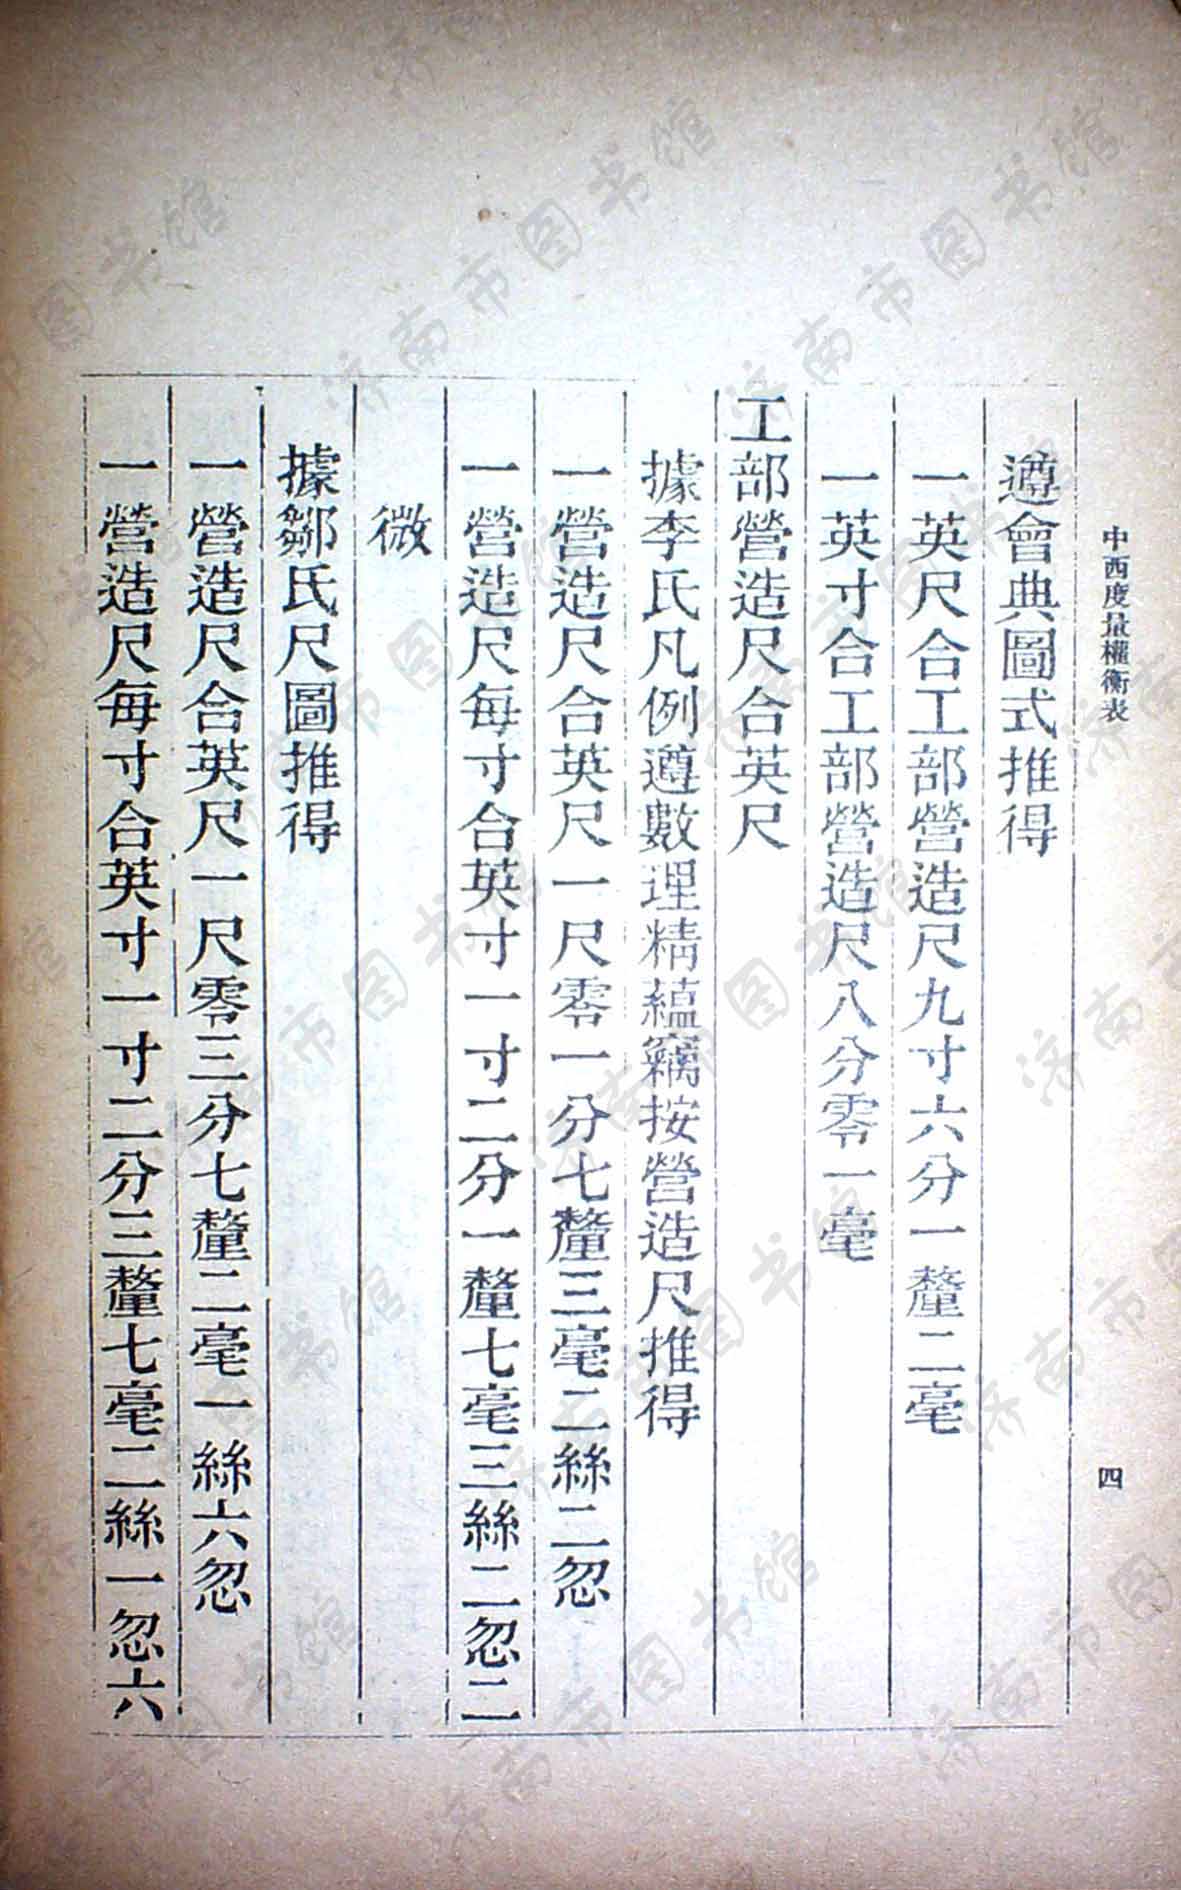 中西度量權衡表
四
遵會典圖式推得
一英尺合工部營造尺九寸六分一釐二毫
一英寸合工部營造尺八分零一毫
工部營造尺合英尺
據李氏凡例遵數理精蘊竊按營造尺推得
一營造尺合英尺一尺零一分七釐三毫二絲二忽
一營造尺每寸合英寸一寸二分一釐七毫三絲二忽二
微
據鄒氏尺圖推得
一營造尺合英尺一尺零三分七釐二毫一絲六忽
一營造尺每寸合英寸一寸二分三釐七毫二絲一忽六
济南市图书馆